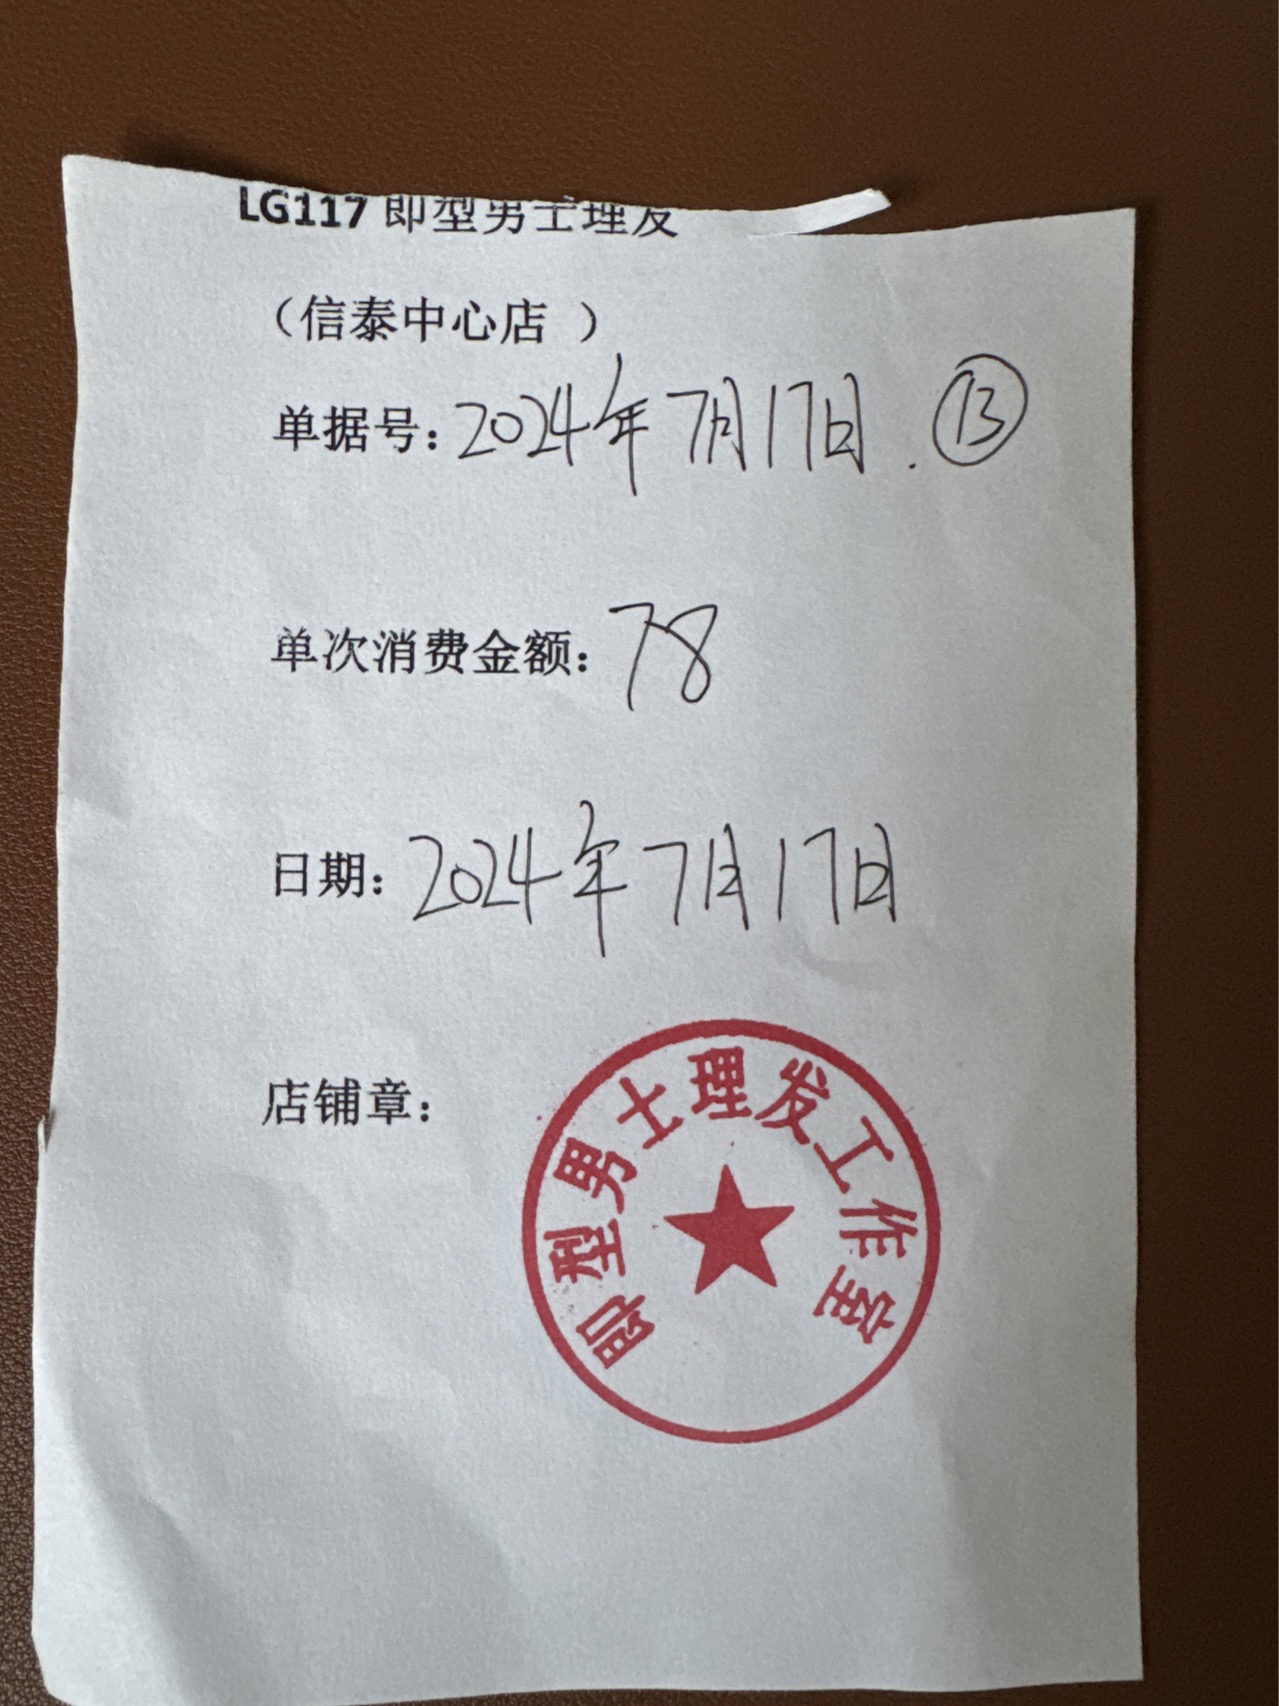 LG117 即型男士理发
（信泰中心店 ）
单据号：2024年7月17日. ⑬
单次消费金额：78
日期：2024年7月17日
店铺章：
即型男士理发工作室